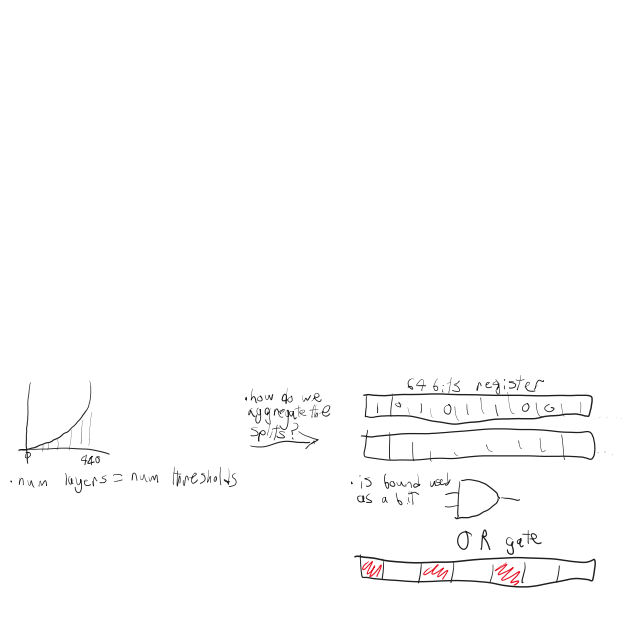 0 440
· num layers = num thresholds
· how do we
aggregate the
splits?
64 bits register
1 0 1 0 1 1 0 0 1
· is bound used
as a bit
OR gate